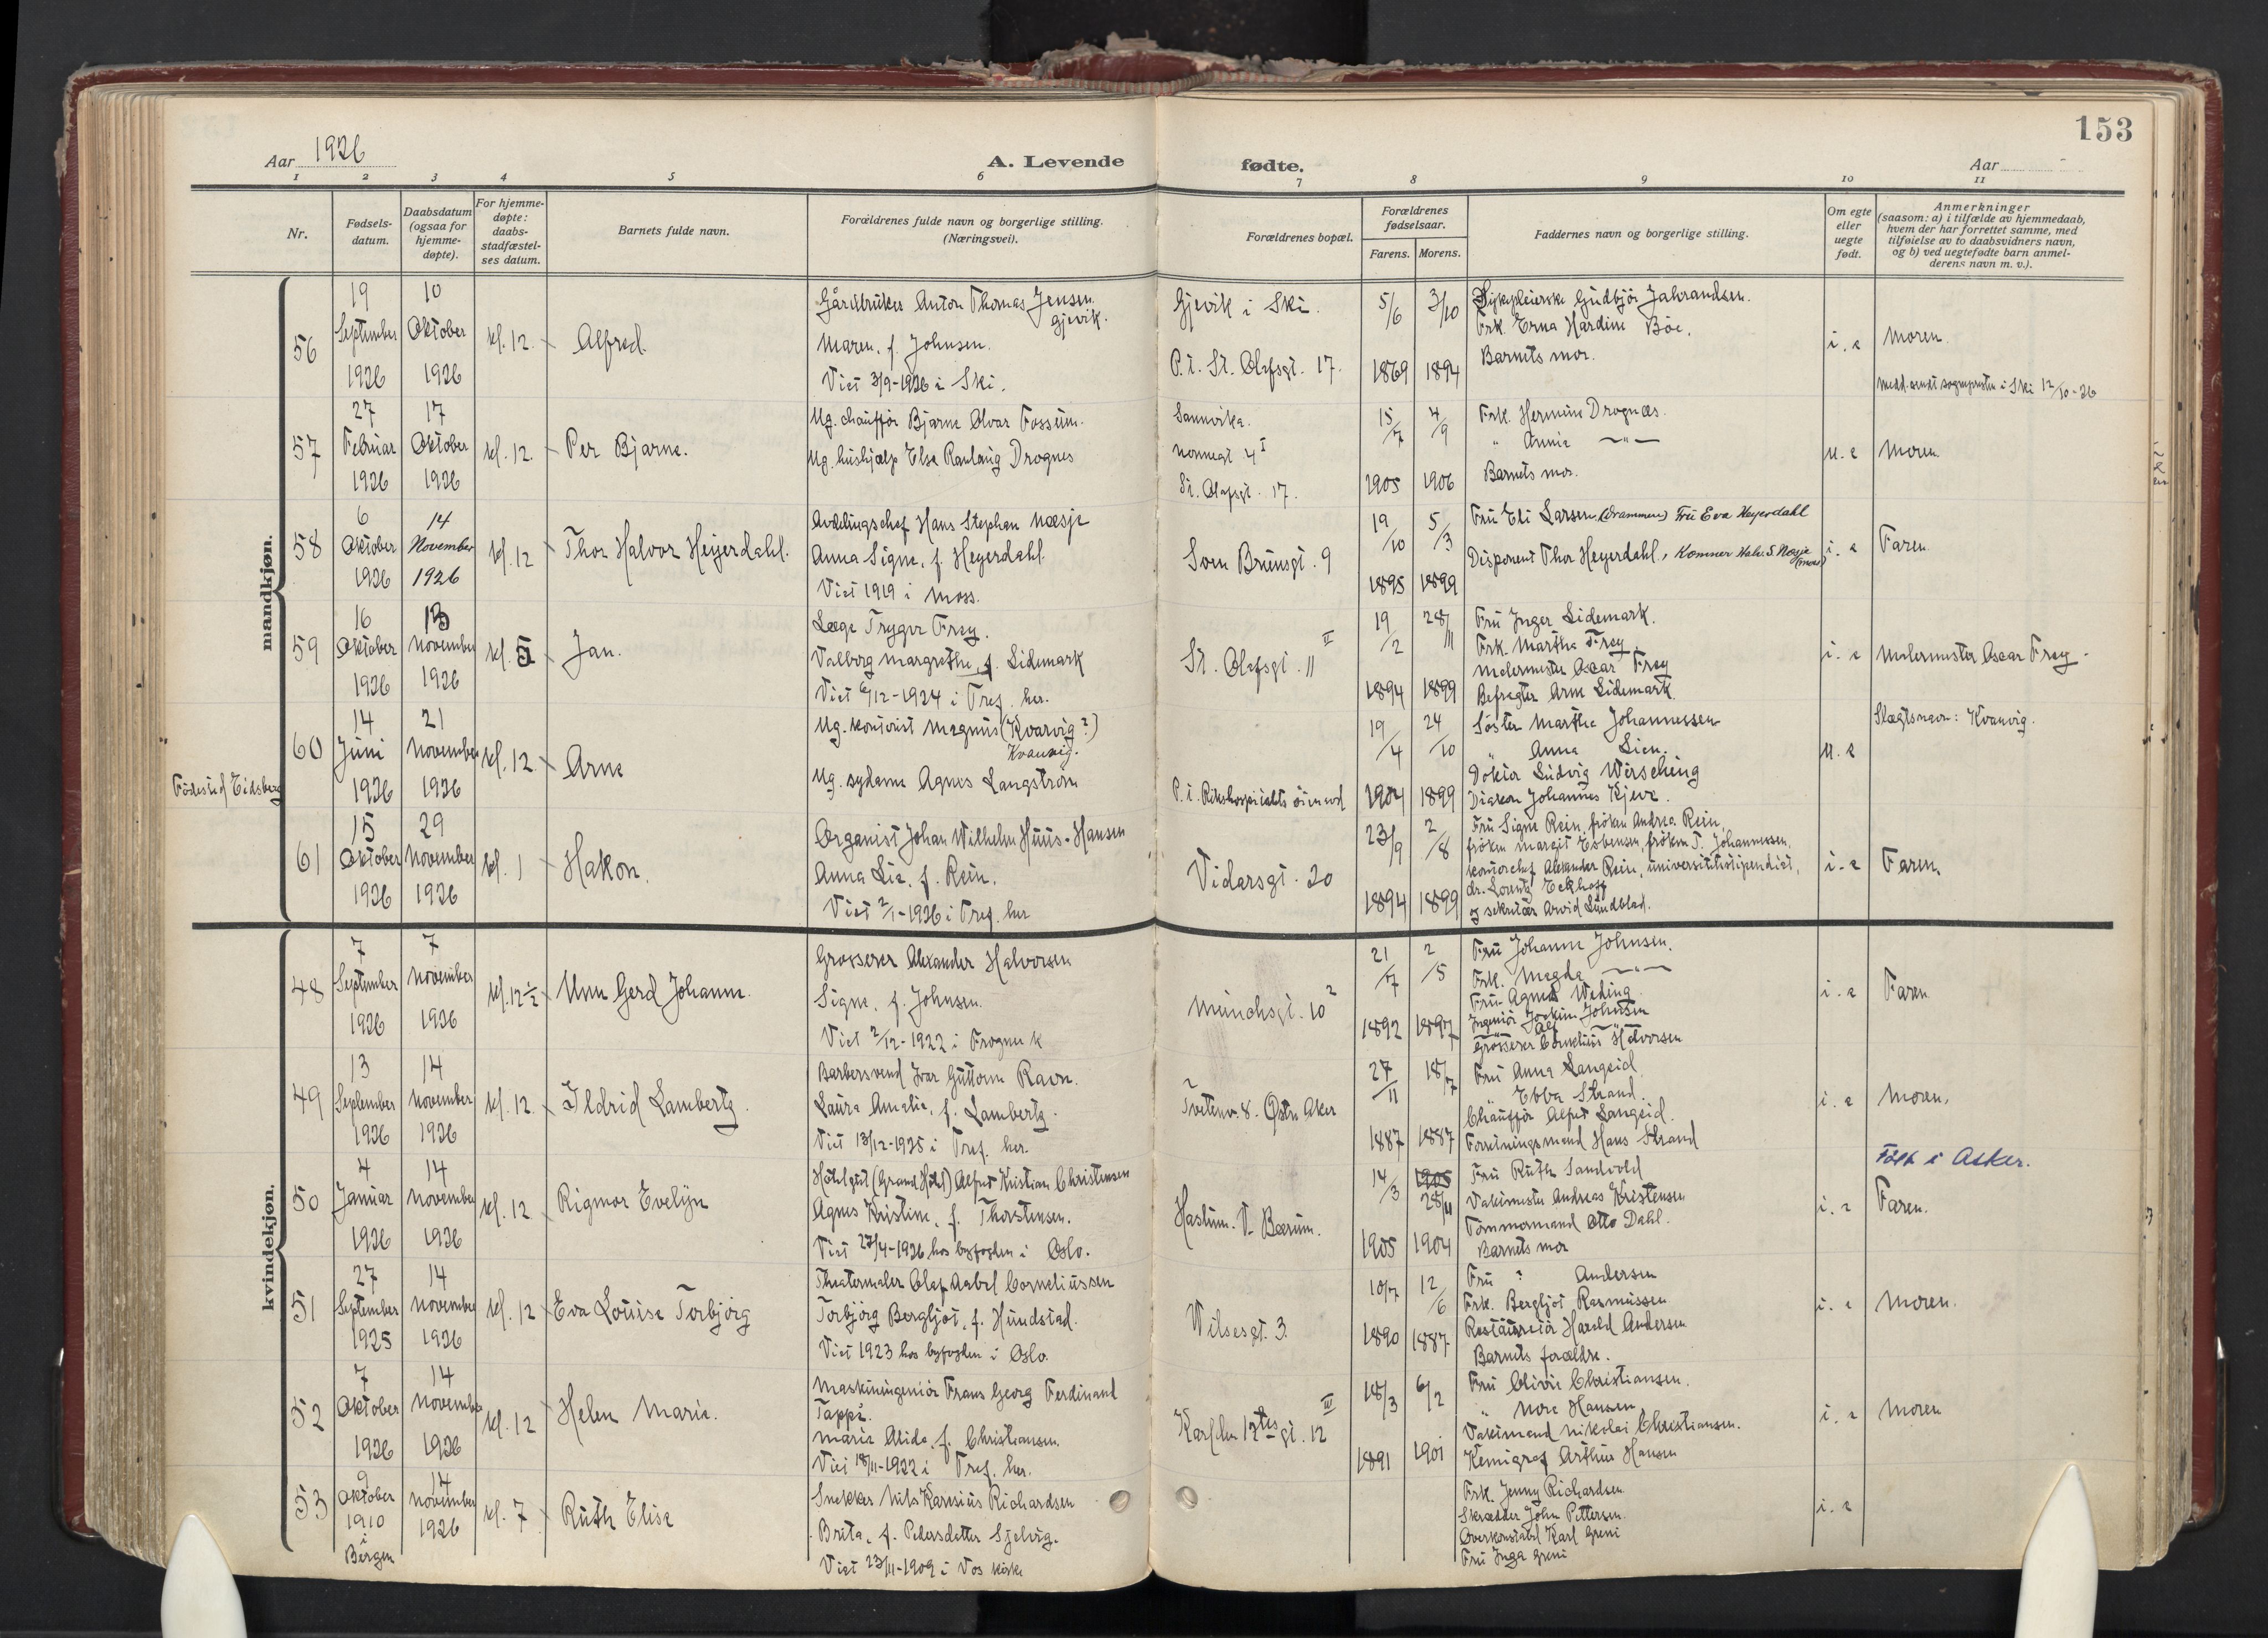 153
Aar 1926
A. Levende fødte.
Aar
1 2 3 4 5 6 7 8 9 10 11
Nr.
Fødsels-
datum.
Daabsdatum
(ogsaa for
hjemme-
døpte).
For hjemme-
døpte:
daabs-
stadfæstel-
ses datum.
Barnets fulde navn.
Forældrenes fulde navn og borgerlige stilling.
(Næringsvei).
Forældrenes bopæl.
Forældrenes
fødselsaar.
Farens. Morens.
Faddernes navn og borgerlige stilling.
Om egte
eller
uegte
født.
Anmerkninger
(saasom: a) i tilfælde av hjemmedaab,
hvem der har forrettet samme, med
tilføielse av to daabsvidners navn,
og b) ved uegtefødte barn anmel-
derens navn m. v.).
mandkjøn.
56
19
September
1926
10
Oktober
1926
kl. 12.
Alfred.
Gårdbruker Anton Thomas Jensen
Gjevik.
Maren, f. Johnsen.
Viet 3/9-1926 i Ski.
Gjevik i Ski.
P.t. St. Olafsgt. 17.
5/6
1869
3/10
1894
Sykepleierske Gudbjør Jahrandsen.
Frk. Erna Hardine Bøe.
Barnets mor.
i. e
Moren.
Medd. sendt sognepresten i Ski 12/10-26
57
27
Februar
1926
17
Oktober
1926
kl. 12.
Per Bjarne.
Ug. chauffør Bjarne Alvar Fossum.
Ug. hushjælp Else Ranlaug Drognes
Sannvika.
Nonnegt 4 I
St. Olafsgt. 17.
15/7
1905
4/9
1906
Frk. Hermine Drognæs.
" Annie —"—
Barnets mor.
u. e
Moren.
58
6
Oktober
1926
14
November
1926
kl. 12
Thor Halvor Heyerdahl.
Avdelingschef Hans Stephan Næsje
Anna Signe, f. Heyerdahl.
Viet 1919 i Moss.
Sven Brunsgt. 9
19/10
1895
5/3
1899
Fru Eli Larsen (Drammen) Fru Eva Heyerdahl
Disponent Thor Heyerdahl,
i. e
Faren.
59
16
Oktober
1926
November
1926
kl. 5
Jan.
Læge Trygve Frey.
Valborg Margrethe, f. Lidemark
Viet 6/12-1924 i Tref. her.
St. Olafsgt. 11 II
19/2
1894
28/11
1899
Fru Inger Lidemark.
Frk. Martha Frey
Malermester Oscar Frey
Befragter Arne Lidemark
i. e
Malermester Oscar Frey.
60
Fødested Eidsberg
14
Juni
1926
21
November
1926
kl. 12
Arne
Ug. kontorist Magnus (Kvarvig?)
Kvauvig.
Ug. sydame Agnes Langstrøm
P.t. Rikshospitalets
19/4
1904
24/10
1899
Søster Martha Johannessen
" Anna Lien.
Doktor Ludvig Wirsching
Diakon Johannes Kjeve.
u. e
Slægtsnavn: Kvauvig.
61
15
Oktober
1926
29
November
1926
kl. 1
Hakon.
Organist Johan Wilhelm Huus-Hansen
Anna Lie, f. Rein.
Viet 2/1-1926 i Tref. her
Vidarsgt. 20
23/9
1894
2/8
1899
Fru Signe Rein, frøken Andrea Rein,
frøken Margit Esbensen, frøken T. Johannessen,
kontorchef Alexander Rein, universitetsstipendiat,
dr. Lorentz Eckhoff
og sekretær Arvid Lundblad.
i. e
Faren.
kvindekjøn.
48
7
September
1926
7
November
1926
kl. 12½
Unn Gerd Johanne.
Grosserer Alexander Halvorsen
Signe, f. Johnsen.
Viet 2/12-1922 i Frogner k
Munchsgt. 10 2
21/7
1892
2/5
1897
Fru Johanne Johnsen.
Frk. Magda —"—
Fru Agnes Weding.
Ingeniør Joakim Johnsen
Grosserer Cornelius Halvorsen
i. e
Faren.
49
13
September
1926
14
November
1926
kl. 12.
Ildrid Lambertz.
Barbersvend Ivar Guttorm Ravn.
Laura Amalie, f. Lambertz.
Viet 13/12-1925 i Tref. her.
Tvetenv. 8. Østre Aker
27/11
1887
18/7
1887
Fru Anna Langeid.
" Ebba Strand.
Chauffør Alfred Langeid.
Forretningsmand Hans Strand
i. e
Moren.
50
4
Januar
1926
14
November
1926
kl. 12
Rigmor Evelyn
Hotelgut (Grand Hotel) Alfred Kristian Christensen
Agnes Kristine, f. Thorstensen.
Viet 27/4-1926 hos byfogden i Oslo.
Haslum. V. Bærum.
14/3
1905
1905
28/11
1904
Fru Ruth Sandvold
Vaktmester Andreas Kristensen
Tømmermand Otto Dahl.
Barnets mor
i. e
Født i Asker.
Faren.
51
27
September
1925
14
November
1926
kl. 12
Eva Louise Torbjørg
Theatermaler Olaf Aabel Corneliussen
Torbjørg Bergljot, f. Hundstad.
Viet 1923 hos byfogden i Oslo.
Vilsesgt. 3.
10/7
1890
12/6
1887
Fru ? Andersen
Frk. Bergljot Rasmussen
Restauratør Harald Andersen
Barnets forældre.
i. e
Moren.
52
7
Oktober
1926
14
November
1926
kl. 12
Helen Marie.
Maskiningeniør Frans Georg Ferdinand
Tappé.
Marie Alida, f. Christiansen.
Viet 18/11-1922 i Tref. her.
Karl den 12tes gt. 12 III
18/3
1891
6/2
1901
Fru Olivie Christiansen.
" More Hansen
Vaktmand Nikolai Christiansen.
Kemigraf Arthur Hansen
i. e
Moren
53
9
Oktober
1910
i
Bergen
14
November
1926
kl. 7
Ruth Elise
Snekker Nils Karesius Richardsen
Brita, f. Pedersdatter Sjelvig.
Viet 23/11-1909 i Vos kirke
Frk. Jenny Richardsen
Skrædder John Pettersen.
Overkonstabel Karl Greni
Fru Inga Greni
i. e